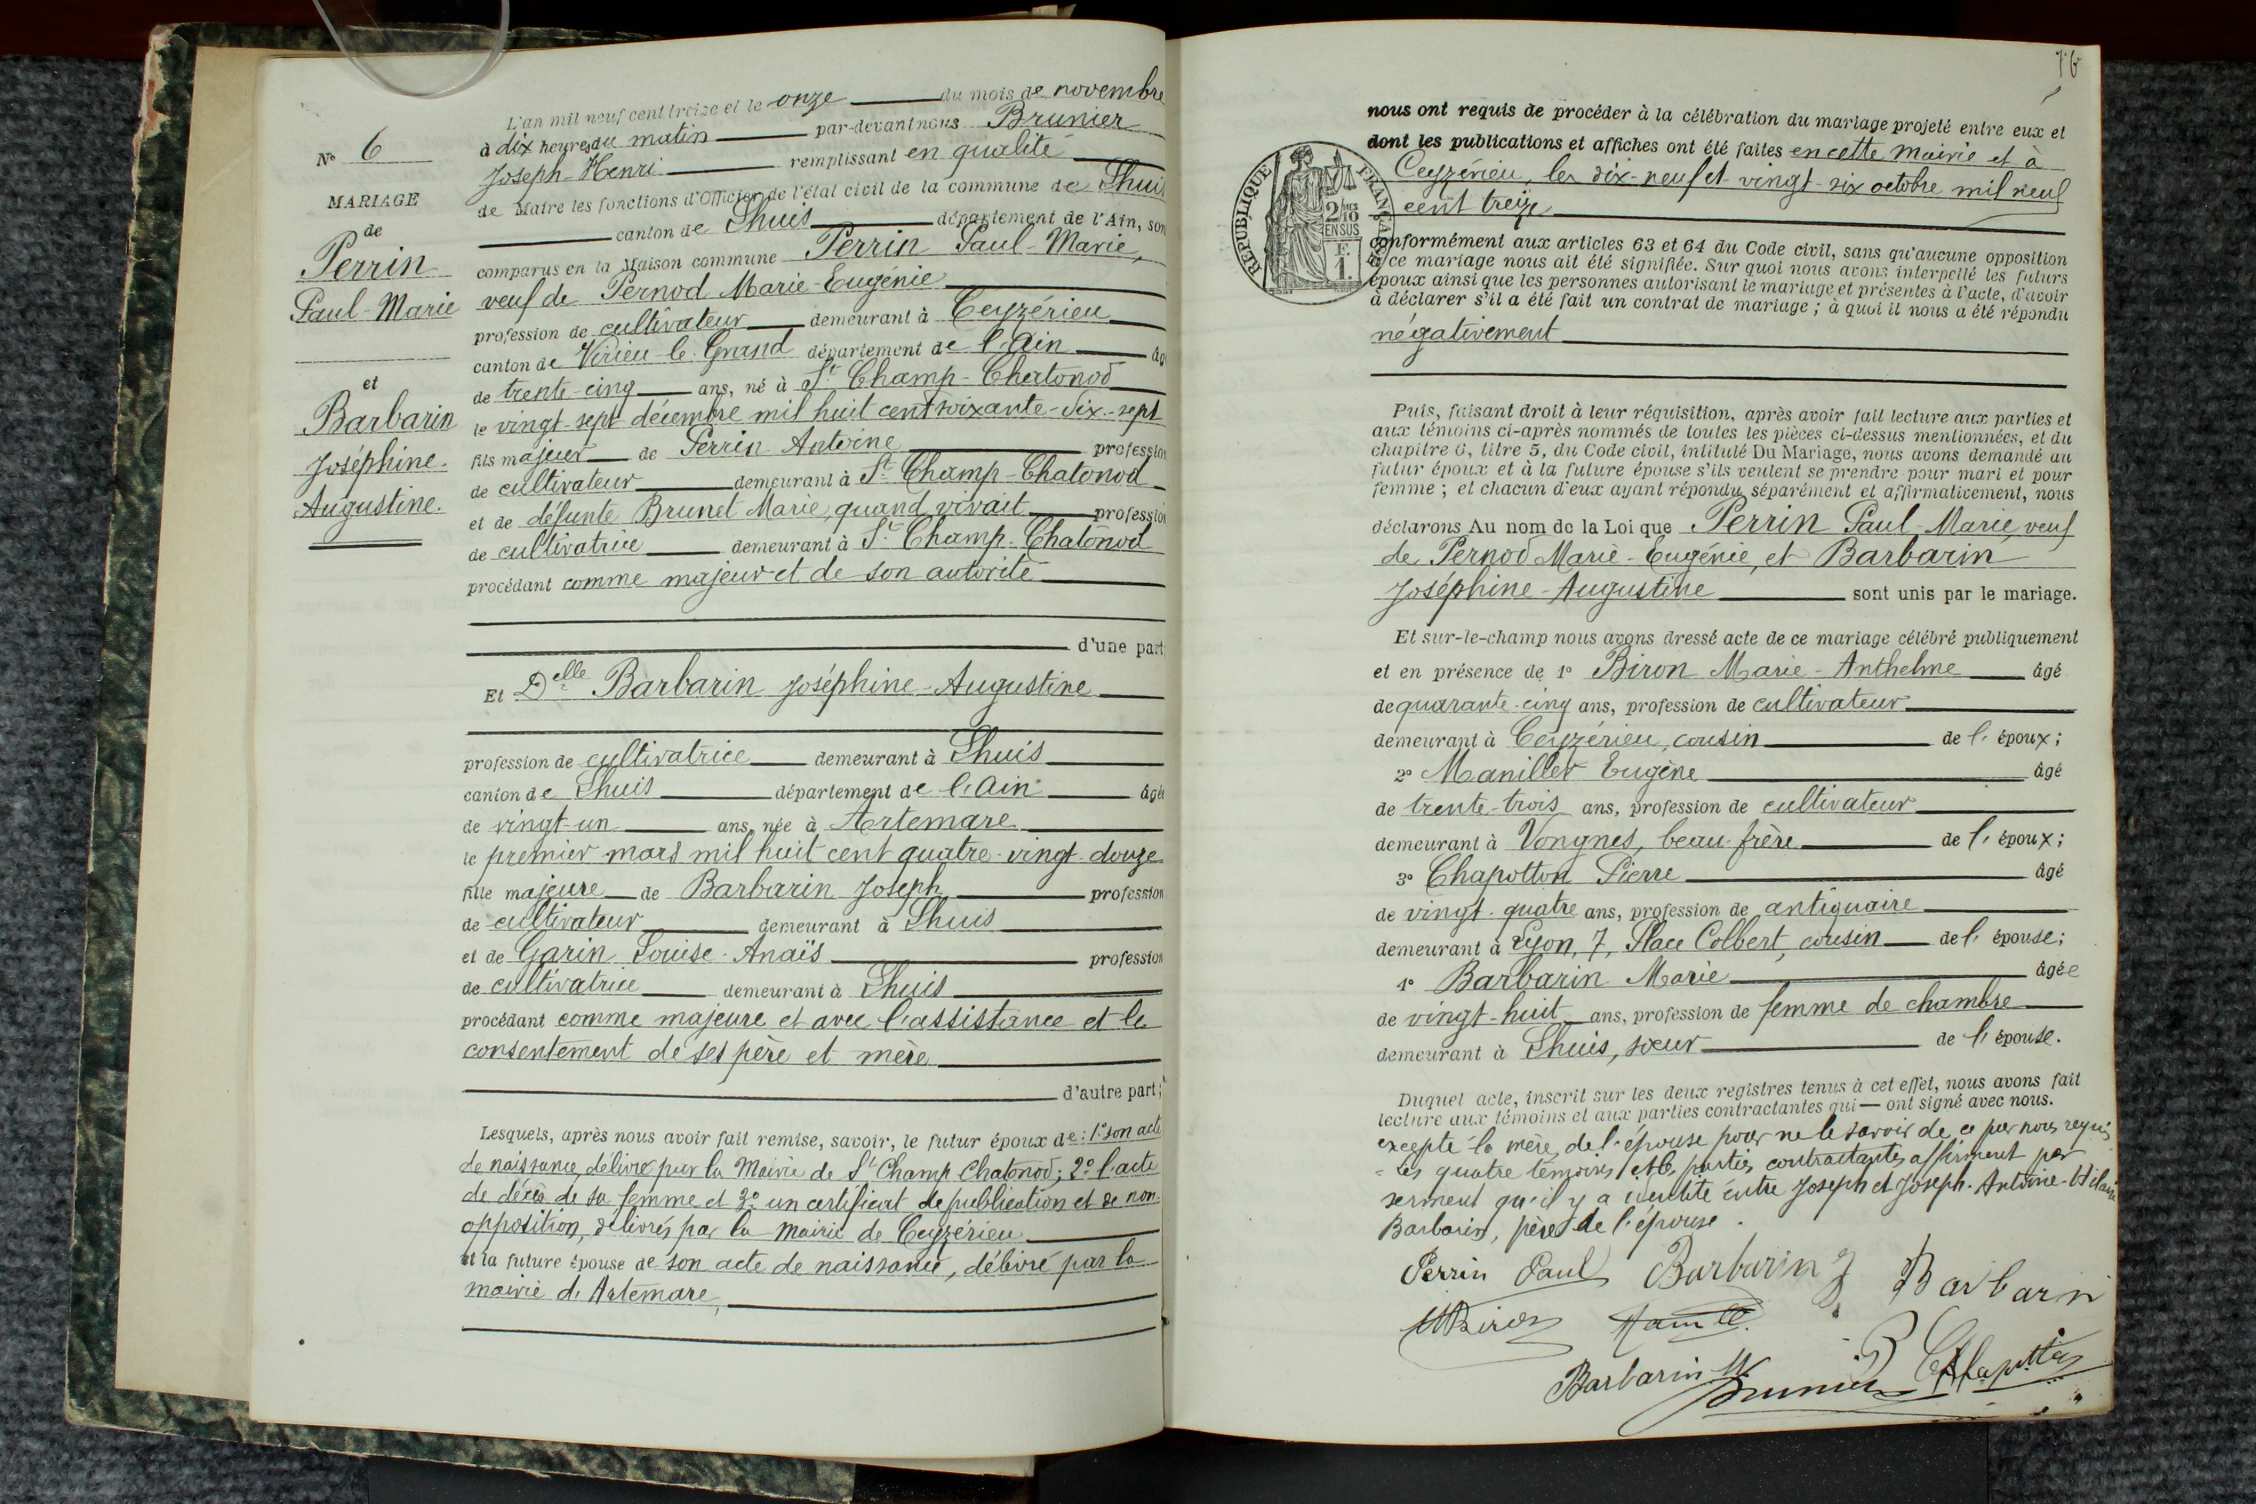 No 6
MARIAGE
de
Perrin
Paul-Marie
et
Barbarin
Joséphine-
Augustine.
L'an mil neuf cent treize et le onze du mois de novembre
à dix heures du matin par-devant nous Brunier
Joseph-Henri remplissant en qualité
de Maire les fonctions d'Officier de l'état civil de la commune de Lhuis
canton de Lhuis département de l'Ain, son
comparus en la Maison commune Perrin Paul-Marie,
veuf de Pernod Marie-Eugénie
profession de cultivateur demeurant à Ceyzérieu
canton de Virieu-le-Grand département de l'Ain âg
de trente-cinq ans, né à St Champ-Chatonod
le vingt-sept décembre mil huit cent soixante-dix-sept
fils majeur de Perrin Antoine profession
de cultivateur demeurant à St Champ-Chatonod
et de défunte Brunet Marie, quand vivait profession
de cultivatrice demeurant à St Champ-Chatonod
procédant comme majeur et de son autorité
d'une part
Et Delle Barbarin Joséphine-Augustine
profession de cultivatrice demeurant à Lhuis
canton de Lhuis département de l'Ain âgée
de vingt-un ans, née à Artemare
le premier mars mil huit cent quatre-vingt-douze
fille majeure de Barbarin Joseph profession
de cultivateur demeurant à Lhuis
et de Garin Louise-Anaïs profession
de cultivatrice demeurant à Lhuis
procédant comme majeure et avec l'assistance et le
consentement de ses père et mère
d'autre part;
Lesquels, après nous avoir fait remise, savoir, le futur époux de: 1° son acte
de naissance, délivré par la Mairie de St Champ Chatonod; 2° l'acte
de décès de sa femme et 3° un certificat de publication et de non-
opposition, délivrés par la mairie de Ceyzérieu
et la future épouse de son acte de naissance, délivré par la
mairie d'Artemare,
76
nous ont requis de procéder à la célébration du mariage projeté entre eux et
dont les publications et affiches ont été faites en cette mairie et à
Ceyzérieu, les dix-neuf et vingt-six octobre mil neuf
cent treize
RÉPUBLIQUE FRANÇAISE
2/10
EN SUS
F.
1.
conformément aux articles 63 et 64 du Code civil, sans qu'aucune opposition
à ce mariage nous ait été signifiée. Sur quoi nous avons interpellé les futurs
époux ainsi que les personnes autorisant le mariage et présentes à l'acte, d'avoir
à déclarer s'il a été fait un contrat de mariage; à quoi il nous a été répondu
négativement
Puis, faisant droit à leur réquisition, après avoir fait lecture aux parties et
aux témoins ci-après nommés de toutes les pièces ci-dessus mentionnées, et du
chapitre 6, titre 5, du Code civil, intitulé Du Mariage, nous avons demandé au
futur époux et à la future épouse s'ils veulent se prendre pour mari et pour
femme; et chacun d'eux ayant répondu séparément et affirmativement, nous
déclarons Au nom de la Loi que Perrin Paul-Marie, veuf
de Pernod Marie-Eugénie, et Barbarin
Joséphine-Augustine sont unis par le mariage.
Et sur-le-champ nous avons dressé acte de ce mariage célébré publiquement
et en présence de 1° Biron Marie-Anthelme âgé
de quarante-cinq ans, profession de cultivateur
demeurant à Ceyzérieu, cousin de l'époux;
2° Manillet Eugène âgé
de trente-trois ans, profession de cultivateur
demeurant à Vongnes, beau-frère de l'époux;
3° Chapotton Pierre âgé
de vingt-quatre ans, profession de antiquaire
demeurant à Lyon, 7, Place Colbert, cousin de l'épouse;
4° Barbarin Marie âgée
de vingt-huit ans, profession de femme de chambre
demeurant à Lhuis, sœur de l'épouse.
Duquel acte, inscrit sur les deux registres tenus à cet effet, nous avons fait
lecture aux témoins et aux parties contractantes qui — ont signé avec nous.
excepté la mère de l'épouse pour ne le savoir de ce par nous requis
- Les quatre témoins et les parties contractantes affirment par
serment qu'il y a identité entre Joseph et Joseph-Antoine-Hilaire
Barbarin, père de l'épouse.
Perrin Paul Barbarin J Barbarin
M Biron
Barbarin M Brunier P Chapotton